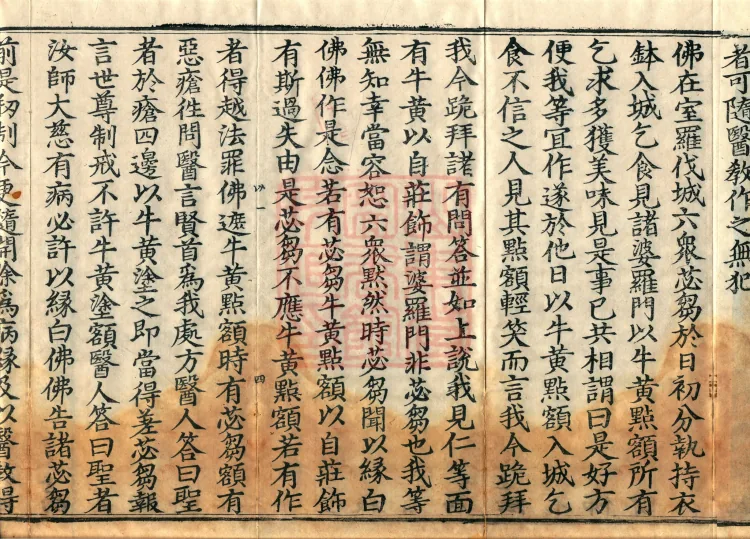 者可隨醫教作之無犯
佛在室羅伐城六衆苾芻於日初分執持衣
鉢入城乞食見諸婆羅門以牛黄點額所有
乞求多獲美味見是事已共相謂曰是好方
便我等宜作遂於他日以牛黄點額入城乞
食不信之人見其點額輕笑而言我今跪拜
我今跪拜諸有問答並如上說我見仁等面
有牛黄以自莊飾謂婆羅門非苾芻也我等
無知幸當容恕六衆黙然時苾芻聞以緣白
佛佛作是念若有苾芻牛黄點額以自莊飾
有斯過失由是苾芻不應牛黄點額若有作
者得越法罪佛遮牛黄點額時有苾芻額有
惡瘡徃問醫言賢首爲我處方醫人答曰聖
者於瘡四邊以牛黄塗之即當得差苾芻報
言世尊制戒不許牛黄塗額醫人答曰聖者
汝師大慈有病必許以緣白佛佛告諸苾芻
前是初制今更隨開除爲病緣及以醫教得